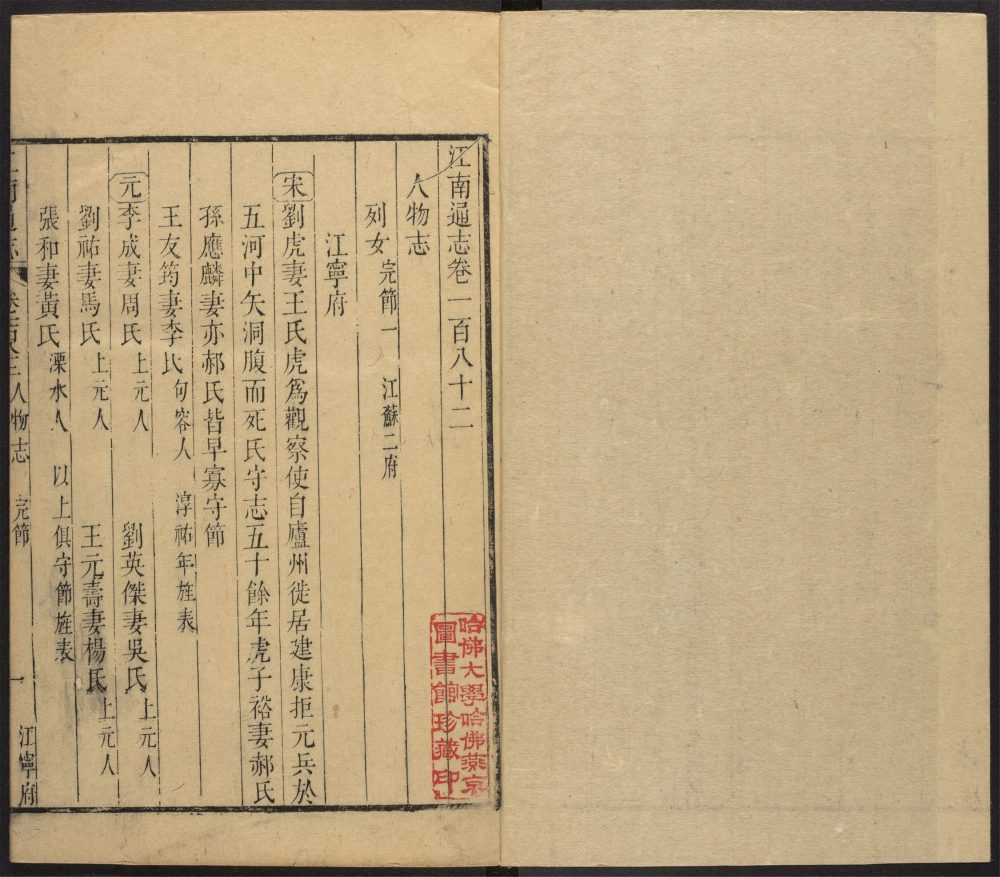 江南通志卷一百八十二
人物志
列女 完節一 江蘇二府
江寧府
宋 劉虎妻王氏虎爲觀察使自廬州徙居建康拒元兵於
五河中矢洞腹而死氏守志五十餘年虎子裕妻郝氏
孫應麟妻亦郝氏皆早寡守節
王友筠妻李氏 句容人 淳祐年旌表
元 李成妻周氏 上元人 劉英傑妻吳氏 上元人
劉祐妻馬氏 上元人 王元壽妻楊氏 上元人
張和妻黃氏 溧水人 以上俱守節旌表
江南通志 卷百八十二 人物志 完節 一 江寧府
哈佛大學哈佛燕京
圖書館珍藏印